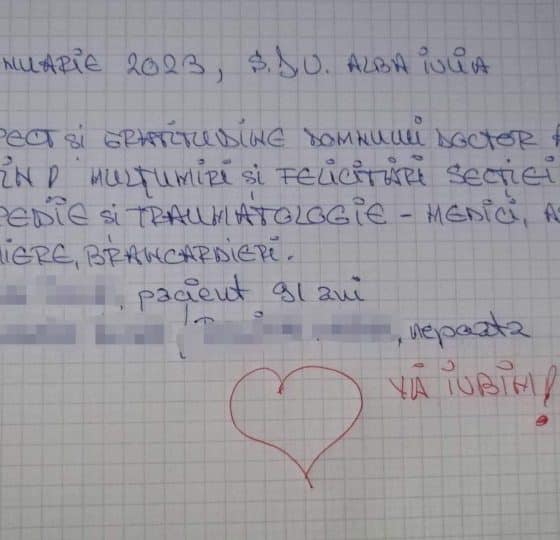 NUARIE 2023, S.J.U. ALBA IULIA
PECT SI GRATITUDINE DOMNULUI DOCTOR
MULȚUMIRI SI FELICITĂRI SECȚIEI
PEDIE SI TRAUMATOLOGIE - MEDICI, A
IERE, BRANCARDIERI.
, pacient 91 ani
, nepoata
VĂ IUBIM!